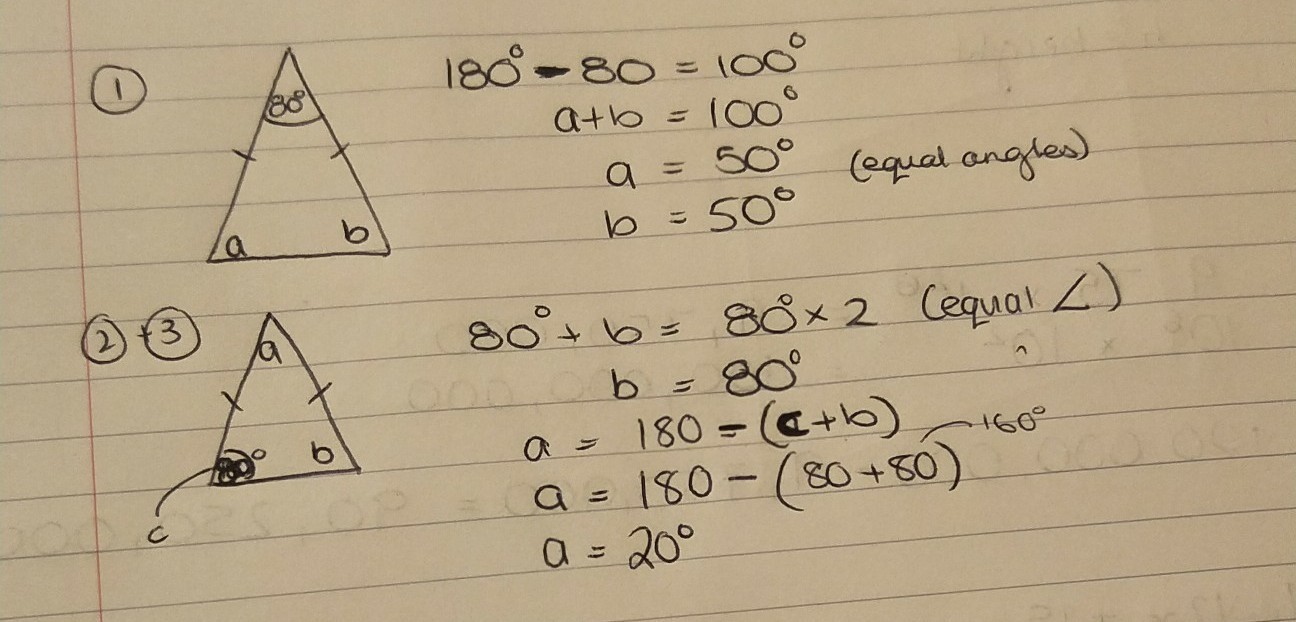 ①
80°
a
b
180° - 80 = 100°
a+b = 100°
a = 50° (equal angles)
b = 50°
② + ③
a
80°
b
c
80° + b = 80° × 2 (equal ∠)
b = 80°
a = 180 - (c+b)
a = 180 - (80+80) 160°
a = 20°